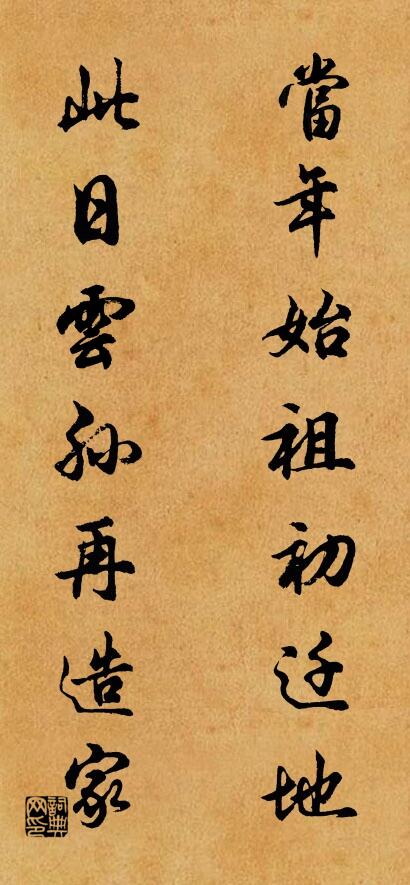 當年始祖初迁地
此日雲孫再造家
詞典网印